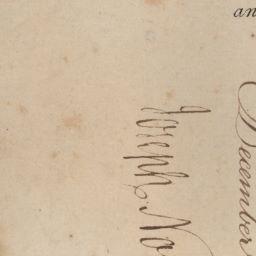 an
December
Joseph No